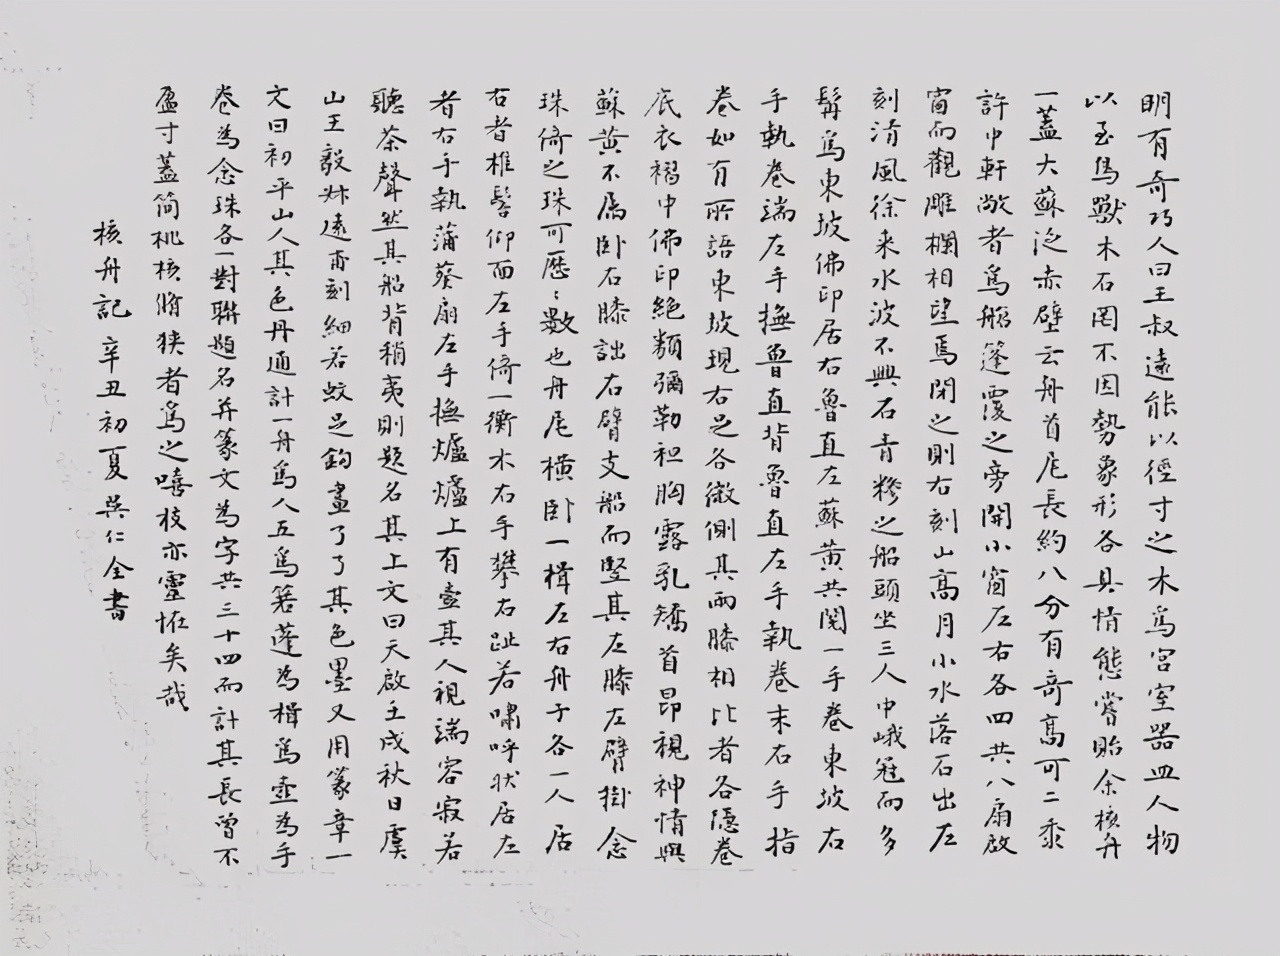 明有奇巧人曰王叔遠能以徑寸之木爲宮室器皿人物
以至鳥獸木石罔不因勢象形各具情態嘗貽余核舟
一蓋大蘇泛赤壁云舟首尾長約八分有奇高可二黍
許中軒敞者爲艙篷覆之旁開小窗左右各四共八扇啟
窗而觀雕欄相望焉閉之則右刻山高月小水落石出左
刻清風徐來水波不興石青糝之船頭坐三人中峨冠而多
髯爲東坡佛印居右魯直左蘇黃共閱一手卷東坡右
手執卷端左手撫魯直背魯直左手執卷末右手指
卷如有所語東坡現右足各微側其兩膝相比者各隱卷
底衣褶中佛印絕類彌勒袒胸露乳矯首昂視神情與
蘇黃不屬卧右膝詘右臂支船而豎其左膝左臂掛念
珠倚之珠可歷〻數也舟尾橫卧一楫左右舟子各一人居
右者椎髻仰面左手倚一衡木右手攀右趾若嘯呼狀居左
者右手執蒲葵扇左手撫爐爐上有壺其人視端容寂若
聽茶聲然其船背稍夷則題名其上文曰天啟壬戌秋日虞
山王毅叔遠甫刻細若蚊足鉤畫了了其色墨又用篆章一
文曰初平山人其色丹通計一舟爲人五爲箬篷為楫爲壺為手
卷爲念珠各一對聯題名并篆文為字共三十四而計其長曾不
盈寸蓋簡桃核脩狹者爲之嘻技亦靈怪矣哉
核舟記 辛丑初夏吳仁全書